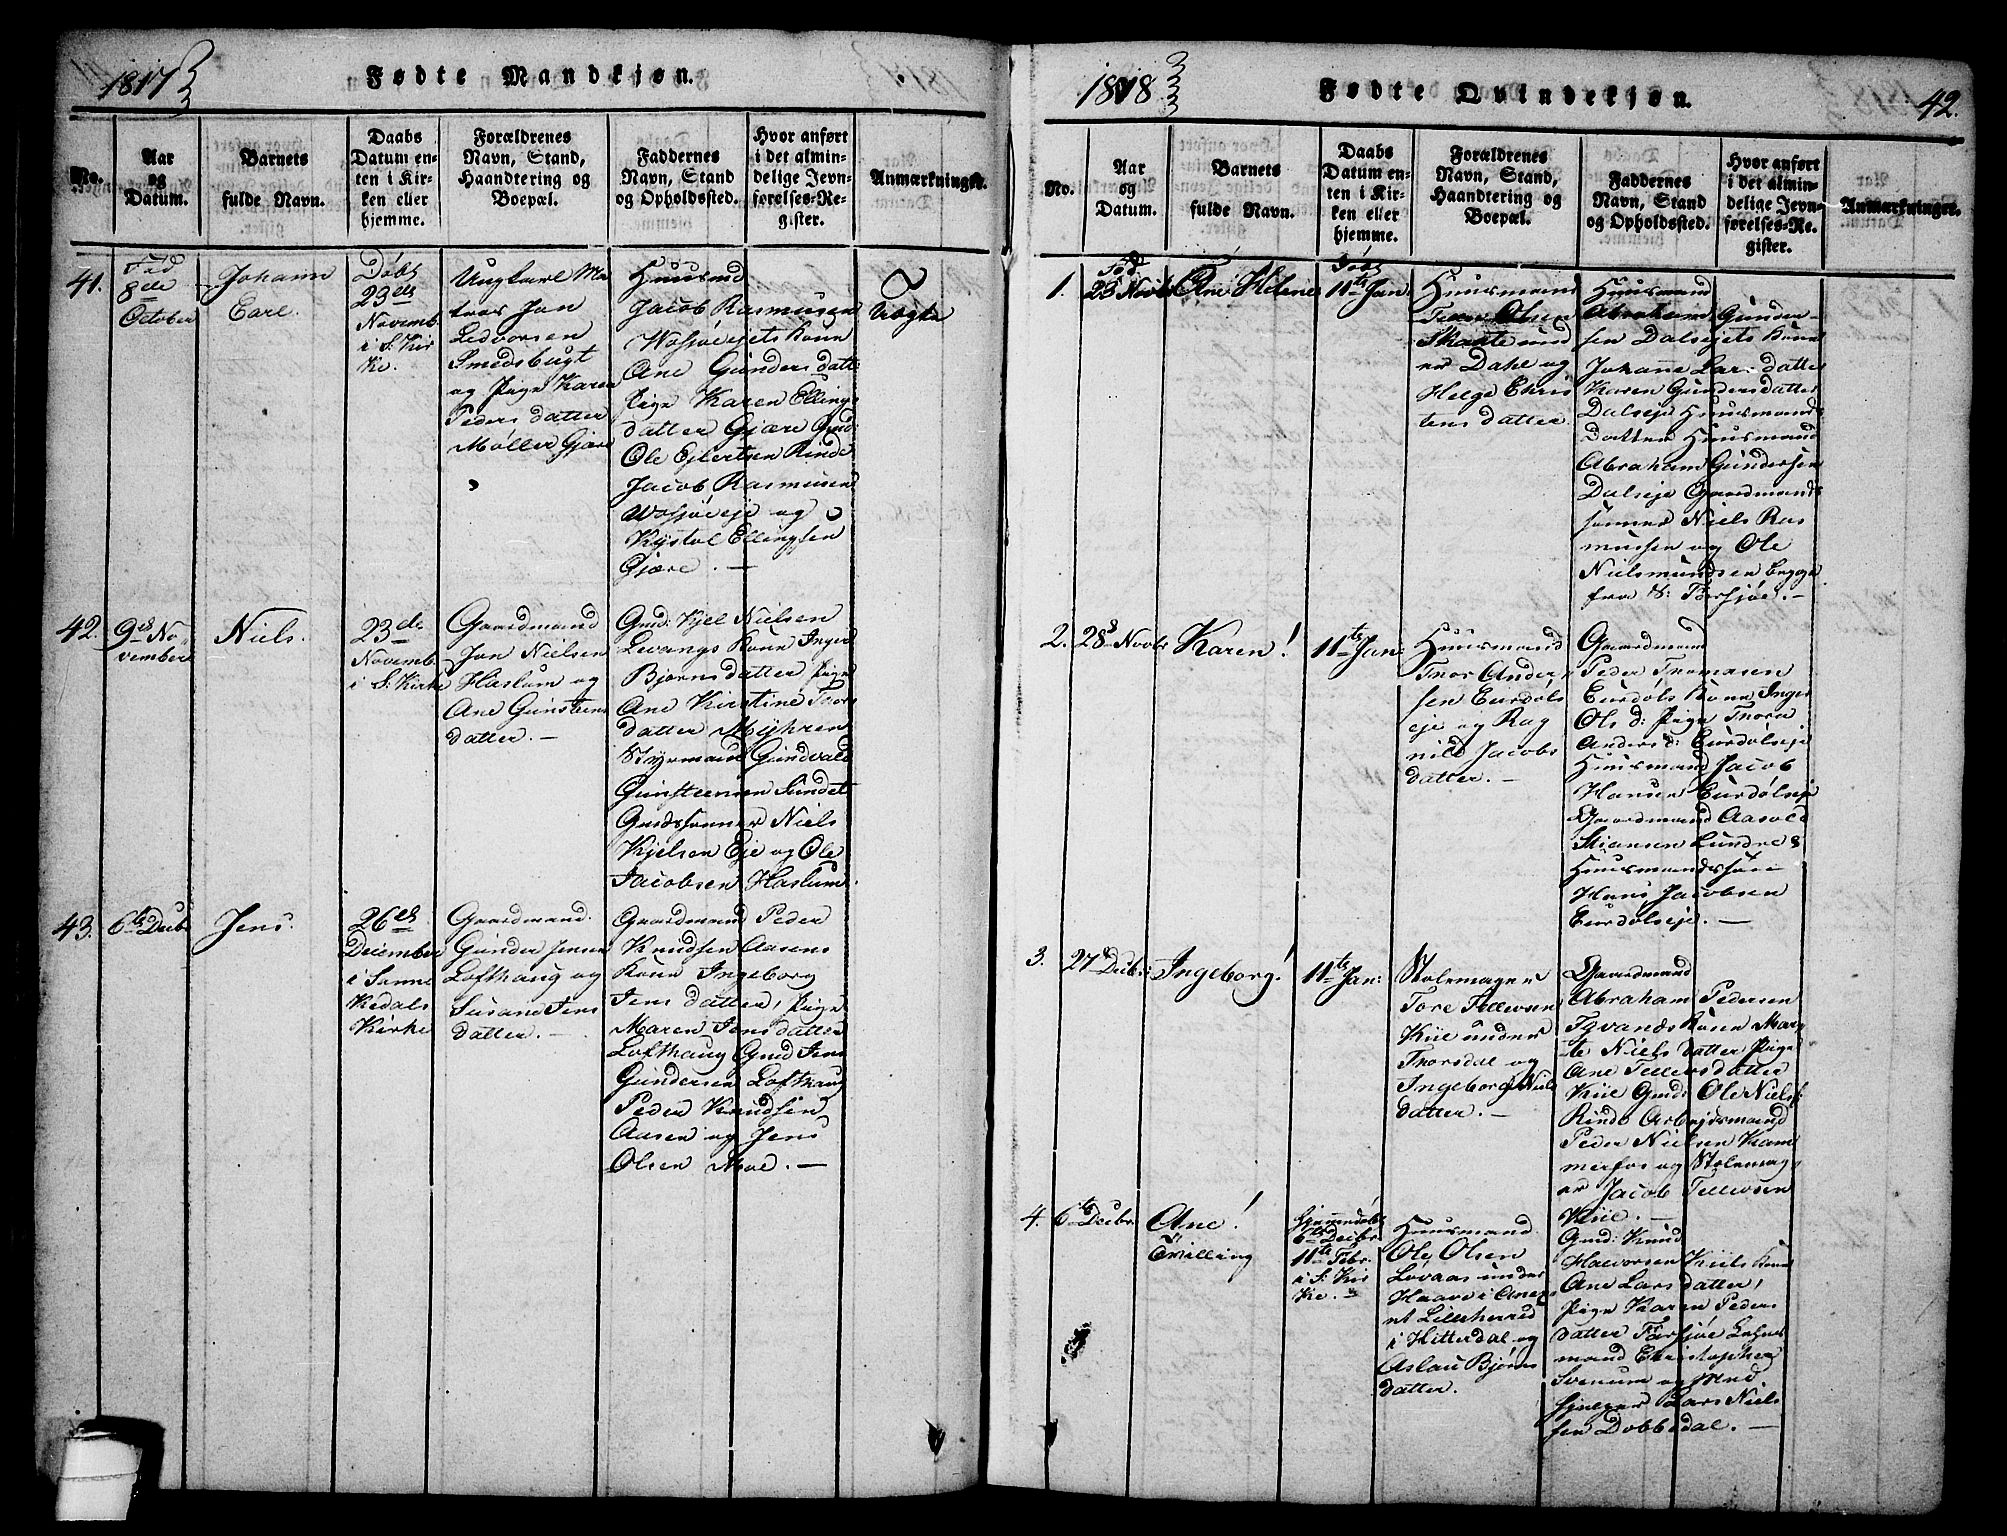 1817
Fødte Mandkjøn.
No.
Aar
og
Datum.
Barnets
fulde Navn.
Daabs
Datum en-
ten i Kir-
ken eller
hjemme.
Forældrenes
Navn, Stand,
Haandtering og
Boepæl.
Faddernes
Navn, Stand
og Opholdssted.
Hvor anført
i det almin-
delige Jevn-
førelses-Re-
gister.
Anmærkninger.
41.
Fød
8de
October
Johann
Carl.
Døbt
23de
Novemb.
i S: Kir
ke.
Ungkarl Ma
tros Jan
Ledvorsen
Smedsbugt
og Pige Karen
Peders datter
Møller Gjære
Huusmd
Jacob Rasmusen
Wafsøeiets Kone
Ane Gunders datt:
Pige Karen Ellings
datter Gjære Gmd:
Ole Ejlertsen Rinde
Jacob Rasmusen
Wosjøeeje og
Kystol Ellingsen
Gjære. —
Uægte
42.
9de No-
vember
Niels.
23de
Novemb.
i S: Kirke
Gaardmand
Jan Nielsen
Haslum og
Ane Gunsteens
datter. —
Gmd: Kjel Nielsen
Levangs Kone Inger
Bjørnsdatter Pige
Ane Kirstine Thors
datter Myhren
Styrmand Gundvald
Gunsteensen Sundet
Gmdssønner Niels
Kjelsen Eje og Ole
Jacobsen Haslum.
43.
6te Decbr
Jens.
26de
December
i Sanne
Kedals
Kirke
Gaardmand.
Gunder Jensen
Lofthaug og
Susane Jens
datter. —
Gaardmand Peder
Knudsen Aasens
Kone Ingeborg
Jens datter, Pige
Maren Jensdatter
Lofthaug Gmd Jens
Gundersen Lofthaug
Peder Knudsen
Aasen og Jens
Olsen Moe. —
1818
Fødte Qvindekjøn.
42.
No.
Aar
og
Datum.
Barnets
fulde Navn.
Daabs
Datum en-
ten i Kir-
ken eller
hjemme.
Forældrenes
Navn, Stand,
Haandtering og
Boepæl.
Faddernes
Navn, Stand
og Opholdssted.
Hvor anført
i det almin-
delige Jevn-
førelses-Re-
gister.
Anmærkninger.
1.
Fød
23 Novbr
Ane Helene
Døbt
11te Jan.
Huusmand
Olsen
Skaate und
er Dahl og
Helge Chris
tens datter
Huusmand
Abraham Gunder
sen Dalsejets Kone
Johanne Lar: datter
Karen Gundersdatter
Dalseje Huusmands
Datter Huusmand
Abraham Gundersen
Dalseje Gaardmands
sønner Niels Ras
mussen og Ole
Nielsmundsen begge
fra S: Farsjøe. —
2.
28d Novbr
Karen!
11te Jan:
Huusmand
Thor Ander
sen Eurdøls
eje og Rag
nild Jacobs
datter. —
Gaardmand
Peder Thomasen
Eurdøls Kone Inger
Ols d: Pige Thora
Anders d: Eurdølseje
Huusmand Jacob
Hansen Eurdølseje
Gaardmand Aasold
Stiansen Lundre &
Huusmandssøn
Hans Jacobsen
Eurdølseje. —
3.
27d Decbr:
Ingeborg!
11te Jan:
Stolemager
Tore Tellevsen
Kiie under
Thorsdal og
Ingeborg Niels
datter. —
Gaardmand
Abraham Pedersen
Tyvands Kone Marg
te Niels datter Pige
Ane Tellevsdatter
Kiie Gmd: Ole Niels:
Rinde Arbejdsmand
Peder Nielsen Kam
merfos og Stolemag
er Jacob Tellevsen
Kiie. —
4.
6te Decbr.
Ane!
Tvilling
Hjemmedøbt
6te Decbr
11te Febr.
i S: Kir
ke.
Huusmand
Ole Olsen
Løvaas under
Haave i Anex
et Lilleherred
i Hitterdal og
Aslau Bjørns
datter.
Gmd: Knud
Halvorsen Kiils Kone
Ane Lars datter,
Pige Karen Peders
datter Farsjøe Lehns
mand Christopher
Svenum og Med
hjelper Lars Niel
sen Dobbedal. —